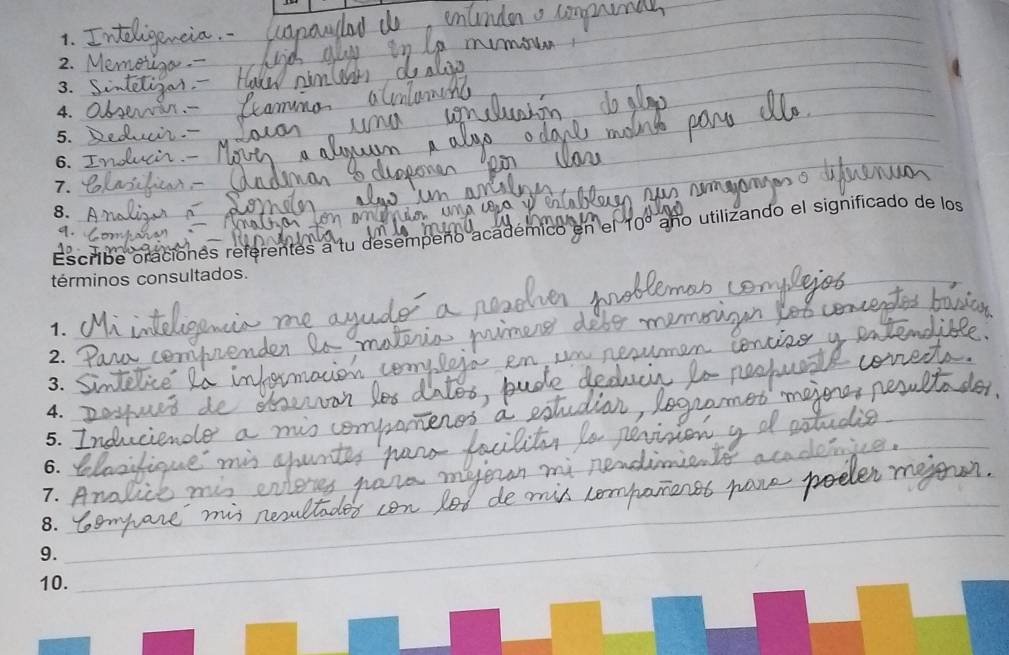 1. Inteligencia.- Capacidad de entender o comprender
2. Memoriza.- fijar algo en la memoria.
3. Sintetizar.- Hacer síntesis de algo
4. Observar.- Examinar atentamente
5. Deducir.- Sacar una conclusión de algo
6. Inducir.- Mover a alguien a algo o darle motivo para ello.
7. Clasificar.- Ordenar o disponer por clase
8. Analizar.- Someter algo un análisis
9. Comparar.- Analizar con atención una cosa y establecer sus semejanzas o diferencias
10. Imaginar.- Representa en la mente la imagen de algo
Escribe oraciones referentes a tu desempeño académico en el 10º año utilizando el significado de los
términos consultados.
1. Mi inteligencia me ayudó a resolver problemas complejos
2. Para comprender la materia primero debo memorizar los conceptos básicos.
3. Sinteticé la información compleja en un resumen conciso y entendible.
4. Después de observar los datos, pude deducir la respuesta correcta.
5. Induciendo a mis compañeros a estudiar, logramos mejores resultados.
6. Clasifiqué mis apuntes para facilitar la revisión y el estudio
7. Analicé mis errores para mejorar mi rendimiento académico.
8. Comparé mis resultados con los de mis compañeros para poder mejorar.
9.
10.